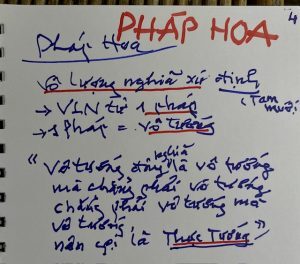 4
PHÁP HOA
Pháp Hoa
Vô lượng nghĩa xứ định
(Tam muội)
→ VLN từ 1 pháp
→ 1 pháp = vô tướng
" Vô tướng đúng nghĩa là vô tướng
mà chẳng phải vô tướng
chẳng phải vô tướng mà
vô tướng
nên gọi là Thực Tướng "